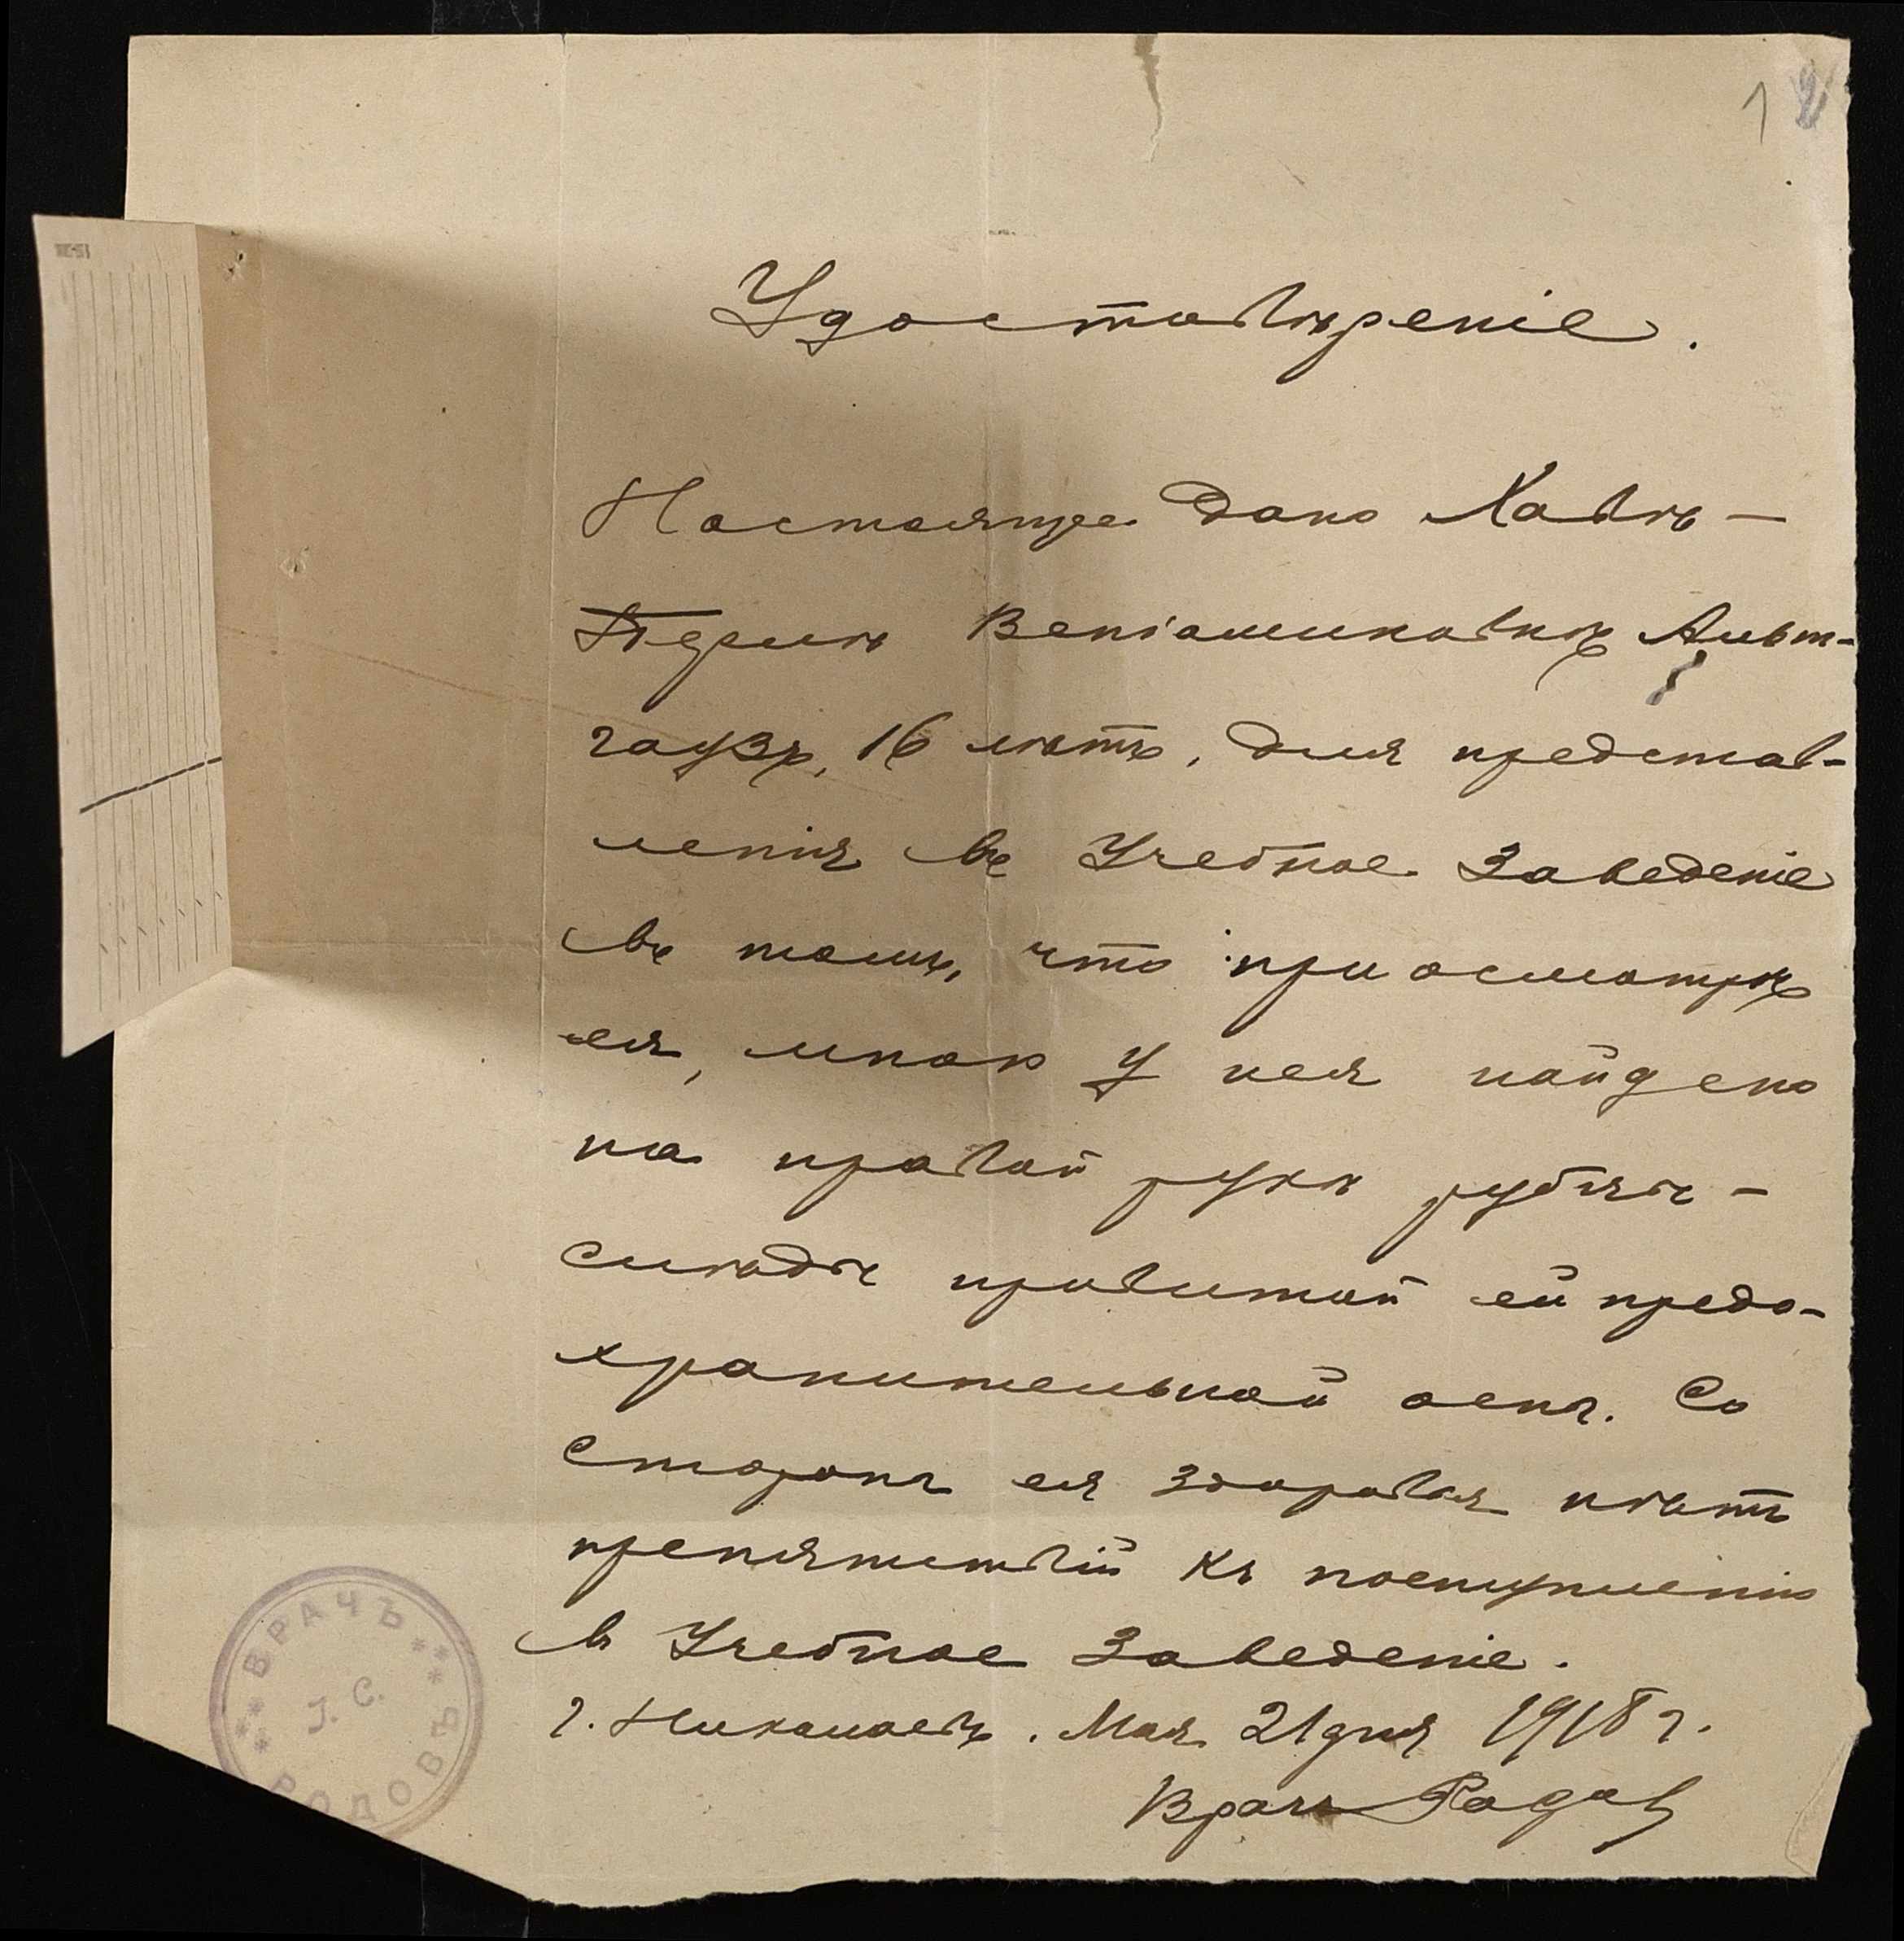 1 2
Удостовѣреніе.
Настоящее дано Хавѣ-
Веніаминовнѣ Альт-
гаузъ, 16 лѣтъ, для представ-
ленія въ Учебное Заведеніе
въ томъ, что при осмотрѣ
ея, мною у нея найдено
на правой рукѣ рубецъ-
слѣды привитой ей предо-
хранительной оспы. Со
стороны ея здоровья нѣтъ
препятствій къ поступленію
въ Учебное Заведеніе.
г. Николаевъ. Мая 21 дня 1918 г.
Врачъ Родов
ВРАЧЪ
І. С.
РОДОВЪ